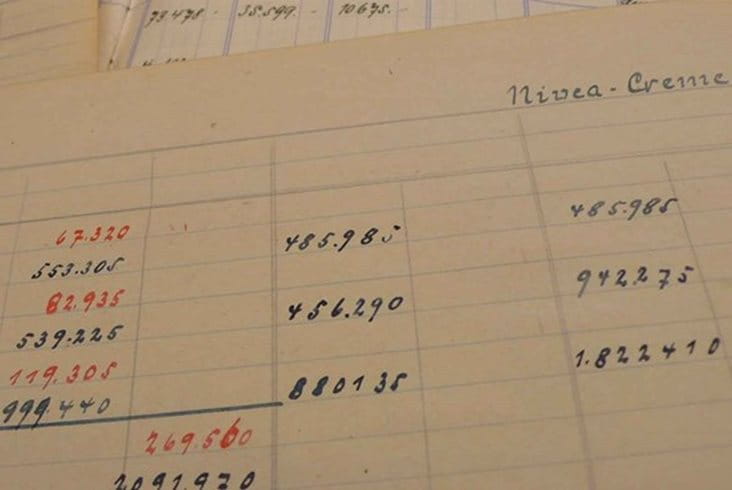 73478 - 35.599. - 10675.-
Nivea-Creme
67.320 485.985 485.985
553.305
82.935 456.290 942.275
539.225
119.305 880135 1.822410
999.440
269.560
2091.970